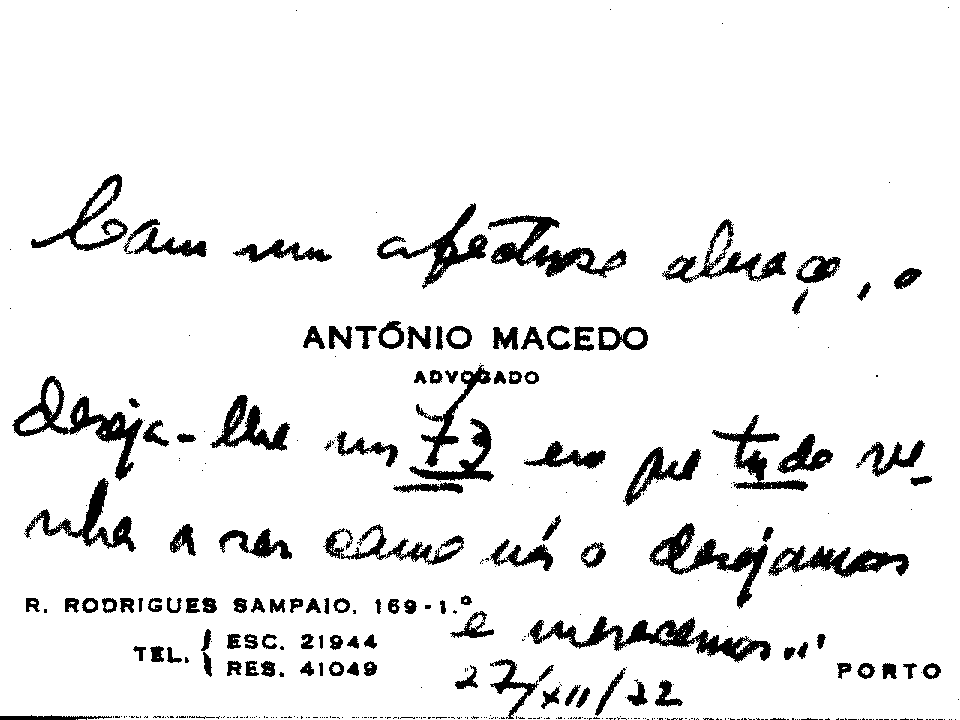 Com um afectuoso abraço, o
ANTÓNIO MACEDO
ADVOGADO
deseja-lhe um 73 em que tudo ve-
nha a ser como nós o desejamos
R. RODRIGUES SAMPAIO, 169-1.º
e merecemos..."
TEL. { ESC. 21944
RES. 41049
PORTO
27/XII/72